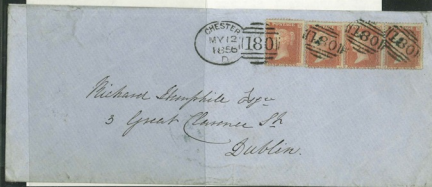 CHESTER
MY 12
1856
D
180
Richard Hemphile Esqre
3 Great Clarence St.
Dublin.